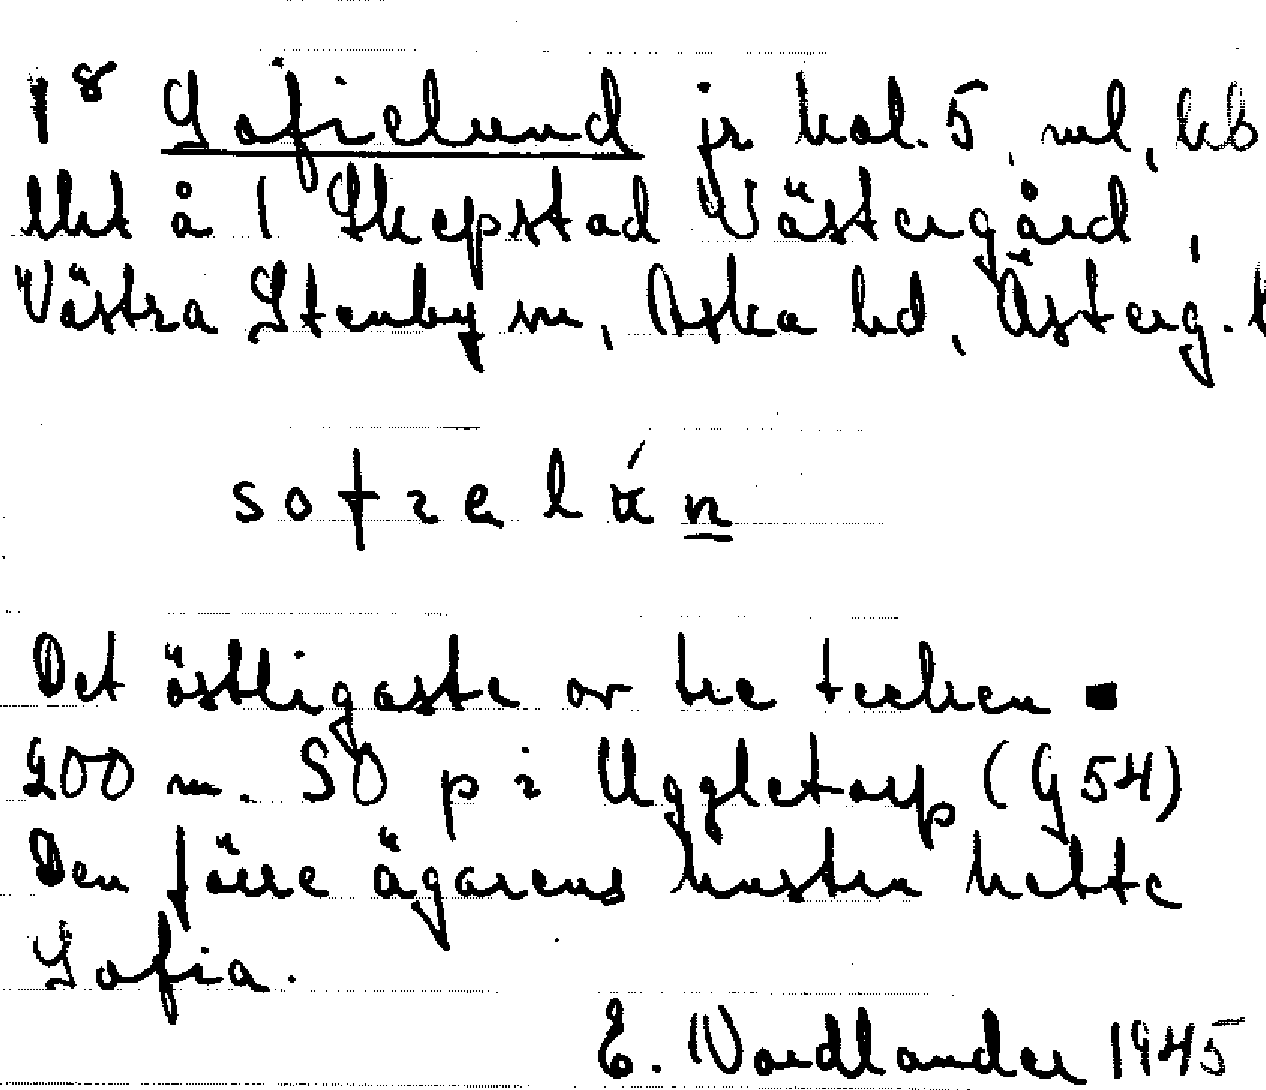 18 Sofielund jr kol. 5, ml, kb
tkt å 1 Skepstad Västergård,
Västra Stenby sn, Aska hd, Österg. l
sofiəlún
Det östligaste av tre tecken ■
200 m. SO p i Uggletorp (G54)
Den förre ägarens hustru hette
Sofia.
E. Nordlander 1945